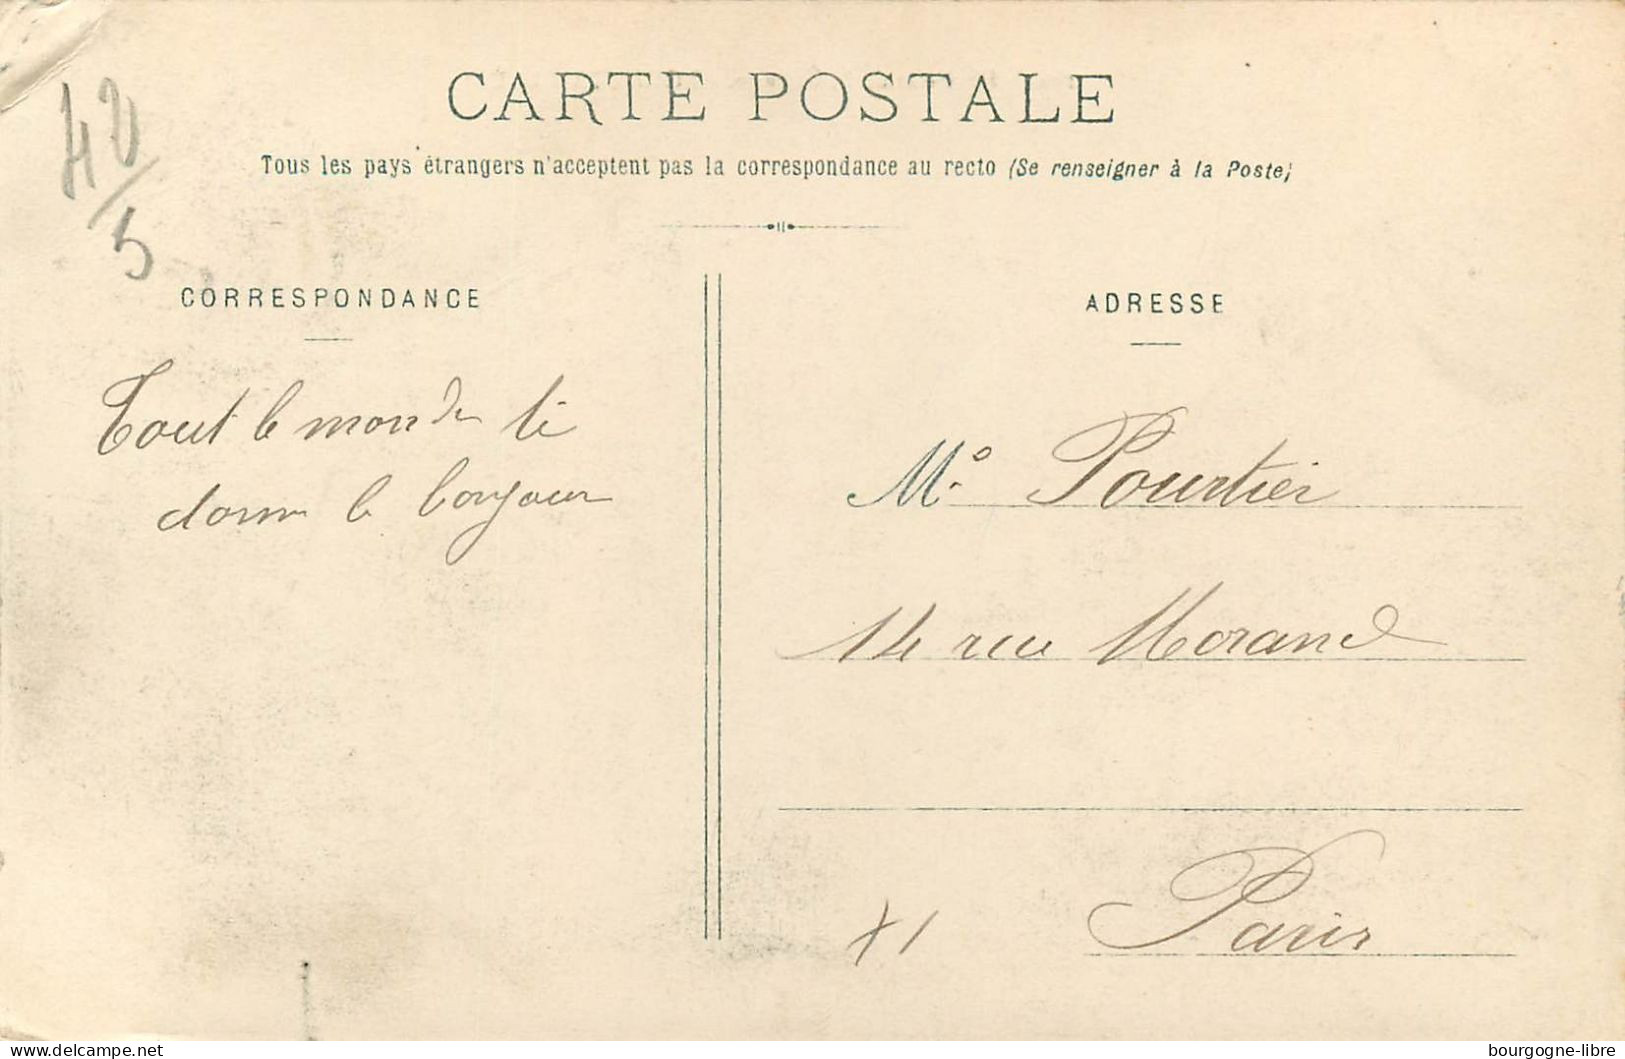 42/5
CARTE POSTALE
Tous les pays étrangers n'acceptent pas la correspondance au recto (Se renseigner à la Poste)
CORRESPONDANCE
Tout le monde te
donne le bonjour
ADRESSE
Mr Pourtier
14 rue Morand
Paris
X1
delcampe.net
bourgogne-libre